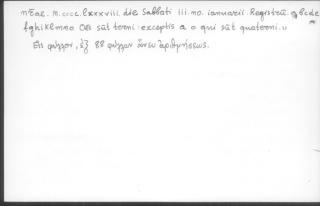 mcccc.lxxxviii. die Sabbati iii. no. ianuarii. Registrū. a bcde
fghiklmno Oēs sūt terni. exceptis a o qui sūt quaterni.
φύλλον, 88 φύλλων ἄνευ ἀριθμήσεως.